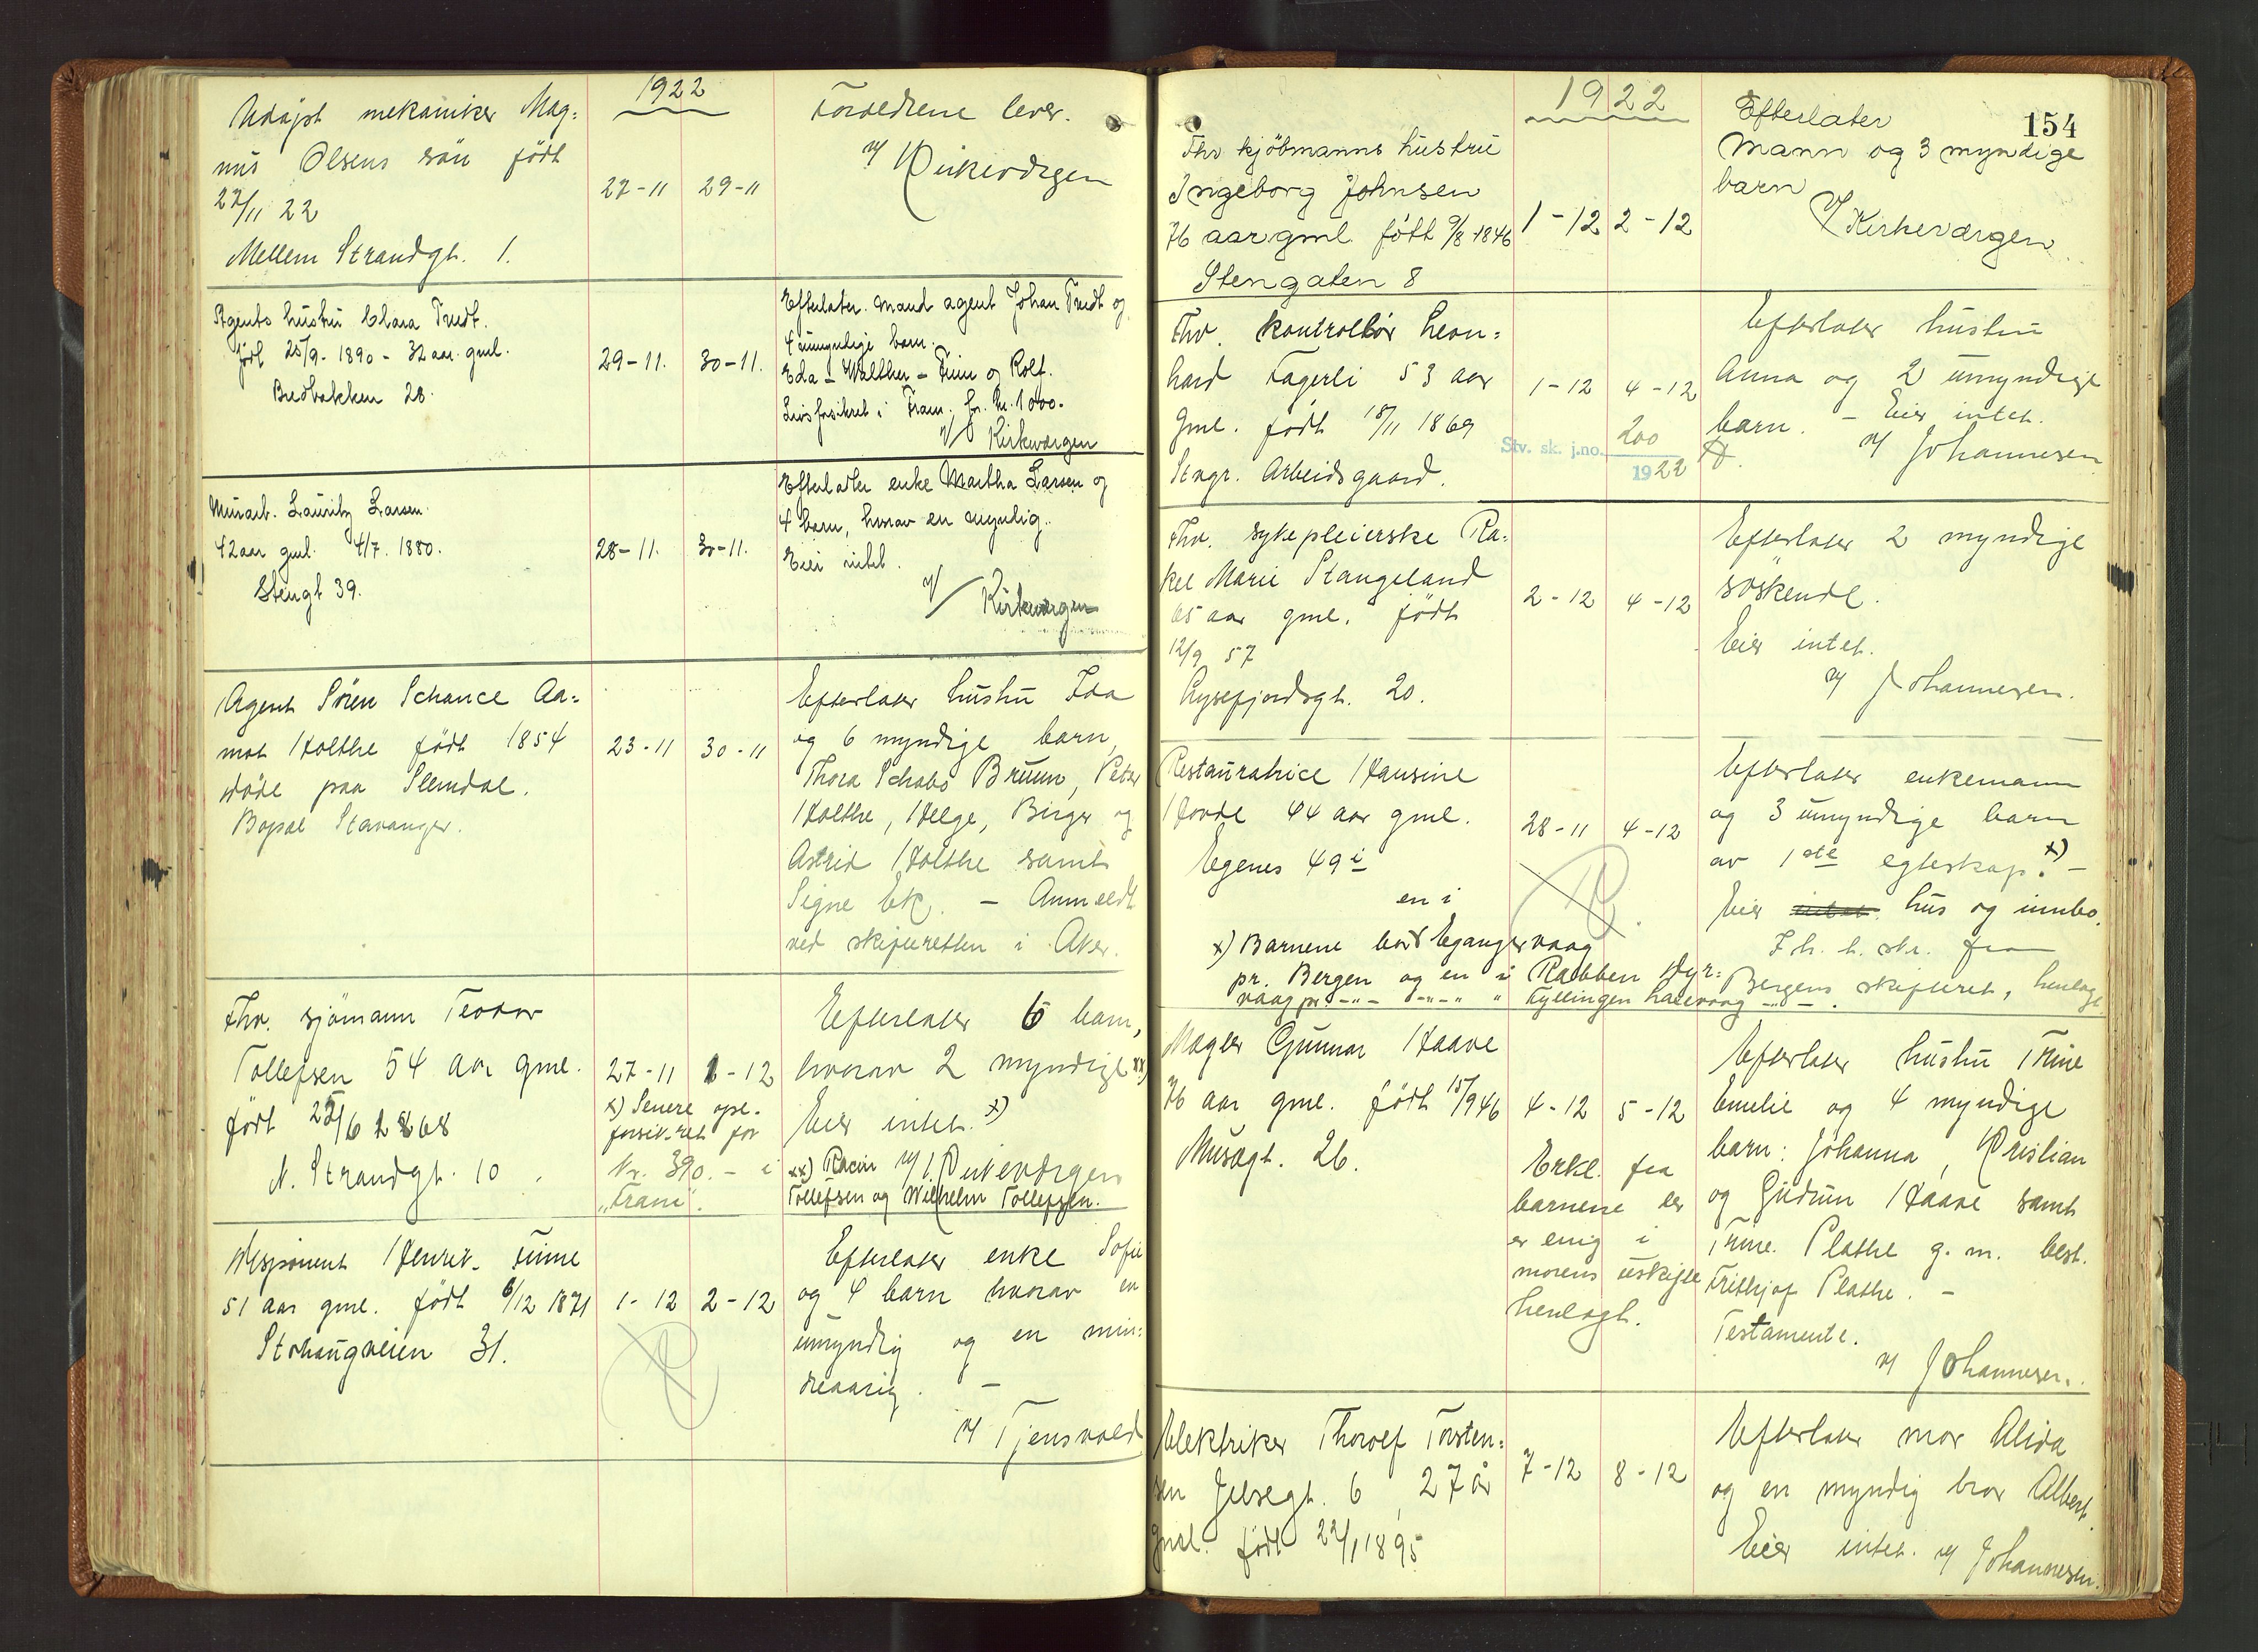 1922
Udøpt mekaniker Mag=
nus Olsens sön født
27/11 22
Mellem Strandgt. 1.
27-11 29-11
Foreldrene lever.
v/ Kirkevergen
Agents hustru Clara Tredt.
född 25/9-1890 - 32 aar. gml.
Bredbakken 28.
29-11. 30-11.
Efterlater mand agent Johan Tredt og
4 umyndige barn.
Eda - Walther - Finn og Rolf.
Livsforsikret i Fram. for Kr. 1000.
v/ Kirkevergen
Murarb. Lauritz Larsen.
42 aar gml. 4/7. 1880.
Stengt 39.
28-11. 30-11.
Efterlatter enke Martha Larsen og
4 barn, hvorav en myndig.
Eier intet.
v/ Kirkevergen
Agent Sören Schance Aa=
mot Holthe født 1854
døde paa Slemdal.
Bopæl Stavanger.
23-11 30-11
Efterlater hustru Ida
og 6 myndige barn,
Thora Schabo Bruun, Peter
Holthe, Helge, Birger og
Astrid Holthe samt
Signe Ek. - Anmeldt
ved skifteretten i Aker.
Fhv. sjömann Teodor
Tollefsen 54 aar gml.
født 25/6 1868
N. Strandgt. 10.
27-11 1-12
x) Senere opl.
forsikret for
Kr. 390.- i
"Fram".
Efterlater 6 barn,
hvorav 2 myndige xx)
Eier intet. x)
xx) Racin v/ Kirkevergen
Tollefsen og Wilhelm Tollefsen.
Disponent Henrik Finne
51 aar gml. født 6/12 1871
Stokaugveien 31.
1-12 2-12
Efterlater enke Sofie
og 4 barn hvorav en
umyndig og en min=
dreaarig. -
v/ Tjensvold
1922
154
Fhv kjöbmanns hustru
Ingeborg Johnsen
76 aar gml. fött 9/8-1846
Stengaten 8
1-12 2-12
Efterlater
Mann og 3 myndige
barn
v/ Kirkevergen
Fhv. kontrollör Leon=
hard Fagerli 53 aar
gml. født 18/11 1869
Stvgr. Arbeidsgaard.
1-12 4-12
Stv. sk. j.no. 200
1922
Efterlater hustru
Anna og 2 umyndige
barn. - Eier intet.
v/ Johannesen
Fhv. sykepleierske Ra=
kel Marie Stangeland
65 aar gml. født
12/9 57
Lysefjordsgt. 20.
2-12 4-12
Efterlater 2 myndige
söskende.
Eier intet.
v/ Johannesen.
Restauratrice Hansine
Hovde 44 aar gml.
Egenes 49 i
28-11 4-12
Efterlater enkemann
og 3 umyndige barn
av 1ste egteskap. x) -
Eier intet hus og innbo.
en i
x) Barnene bor Egangervaag
pr. Bergen og en i Rabben Dyr=
vaag pr. -"- -"- " Fyllingen -"-.
F. h. h. skr. fra
Bergens skifteret, henlagt.
Megler Gunnar Haave
76 aar gml. født 15/9 46
Musægt. 26.
4-12 5-12
Erkl. fra
barnene
er enig i
morens uskifte
henlagt.
Efterlater hustru Trine
Emelie og 4 myndige
barn: Johanna, Kristian
og Gudrun Haave samt
Trine Plathe g. m. best.
Frithjof Plathe. -
Testamente.
v/ Johannesen.
Elektriker Thorolf Torsten=
sen Jelsegt. 6, 27 år
gml. født 22/1 1895
7-12 8-12
Efterlater mor Alida
og en myndig bror Albert.
Eier intet. v/ Johannesen.